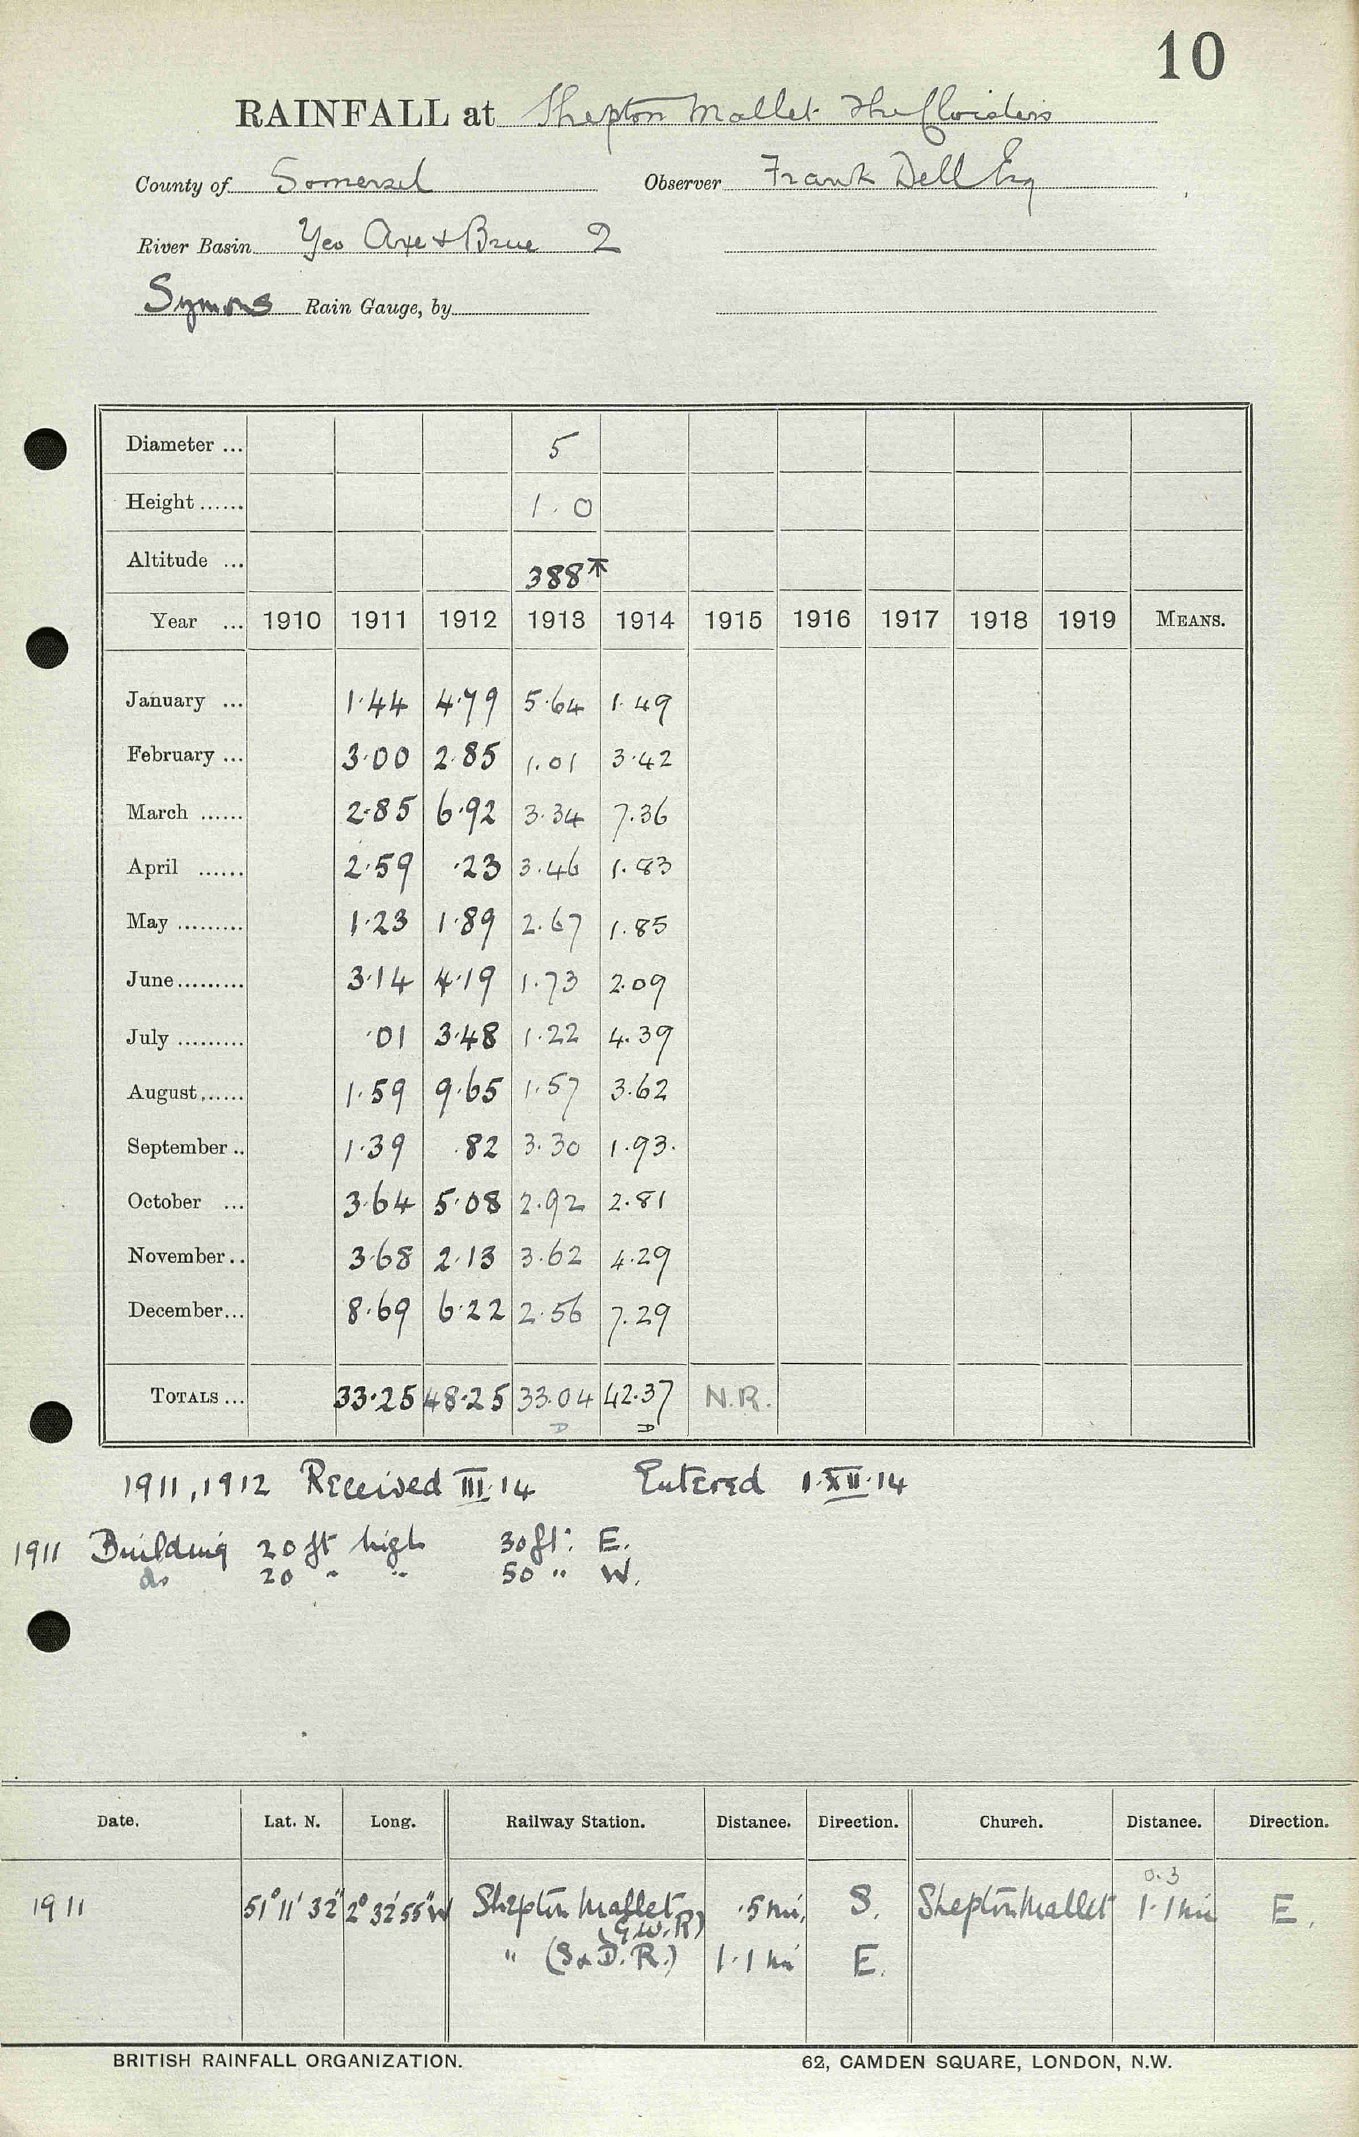 10
RAINFALL at Shepton Mallet The Cloisters
County of Somerset Observer Frank Dell Esq
River Basin Yeo Axe & Brue 2
Symons Rain Gauge, by
Diameter ... 5
Height ...... 1.0
Altitude ... 388
Year ... 1910 1911 1912 1913 1914 1915 1916 1917 1918 1919 MEANS.
January ... 1.44 4.79 5.64 1.49
February ... 3.00 2.85 1.01 3.42
March ...... 2.85 6.92 3.34 7.36
April ...... 2.59 .23 3.46 1.83
May ......... 1.23 1.89 2.67 1.85
June ......... 3.14 4.19 1.73 2.09
July ......... .01 3.48 1.22 4.39
August ...... 1.59 9.65 1.57 3.62
September .. 1.39 .82 3.30 1.93.
October ... 3.64 5.08 2.92 2.81
November .. 3.68 2.13 3.62 4.29
December ... 8.69 6.22 2.56 7.29
TOTALS ... 33.25 48.25 33.04 42.37 N.R.
D D
1911, 1912 Received III.14 Entered 1.XII.14
1911 Building 20 ft high 30 ft. E.
do 20 " " 50 " W.
Date. Lat. N. Long. Railway Station. Distance. Direction. Church. Distance. Direction.
0.3
1911 51° 11' 32" 2° 32' 55" W Shepton Mallet .5 mi. S. Shepton Mallet 1.1 mi E.
(G.W.R)
" (S & D.R.) 1.1 mi E.
BRITISH RAINFALL ORGANIZATION. 62, CAMDEN SQUARE, LONDON, N.W.